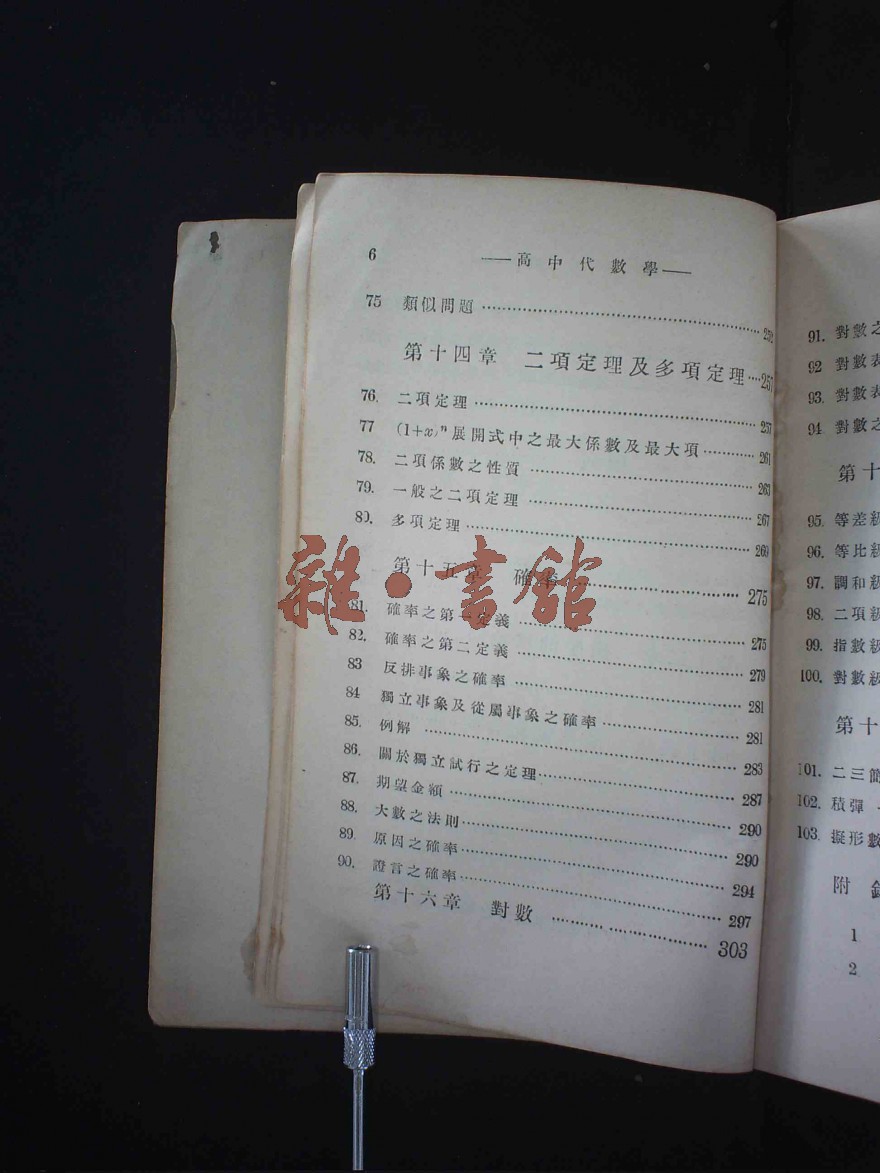 6 ——高中代數學——
75 類似問題 ……… 252
第十四章 二項定理及多項定理 … 257
76. 二項定理 ……… 257
77 (1+x)ⁿ展開式中之最大係數及最大項 ……… 261
78. 二項係數之性質 ……… 263
79. 一般之二項定理 ……… 267
80. 多項定理 ……… 269
第十五章 確率 ……… 275
81. 確率之第一定義 ……… 275
82. 確率之第二定義 ……… 279
83 反排事象之確率 ……… 281
84 獨立事象及從屬事象之確率 ……… 281
85. 例解 ……… 283
86. 關於獨立試行之定理 ……… 287
87. 期望金額 ……… 290
88. 大數之法則 ……… 290
89. 原因之確率 ……… 294
90. 證言之確率 ……… 297
第十六章 對數 ……… 303
雜·書館
91. 對數之
92 對數表
93. 對數表
94 對數之
第十
95. 等差級
96. 等比級
97. 調和級
98. 二項級
99. 指數級
100. 對數級
第十
101. 二三簡
102. 積彈
103. 擬形數
附錄
1
2